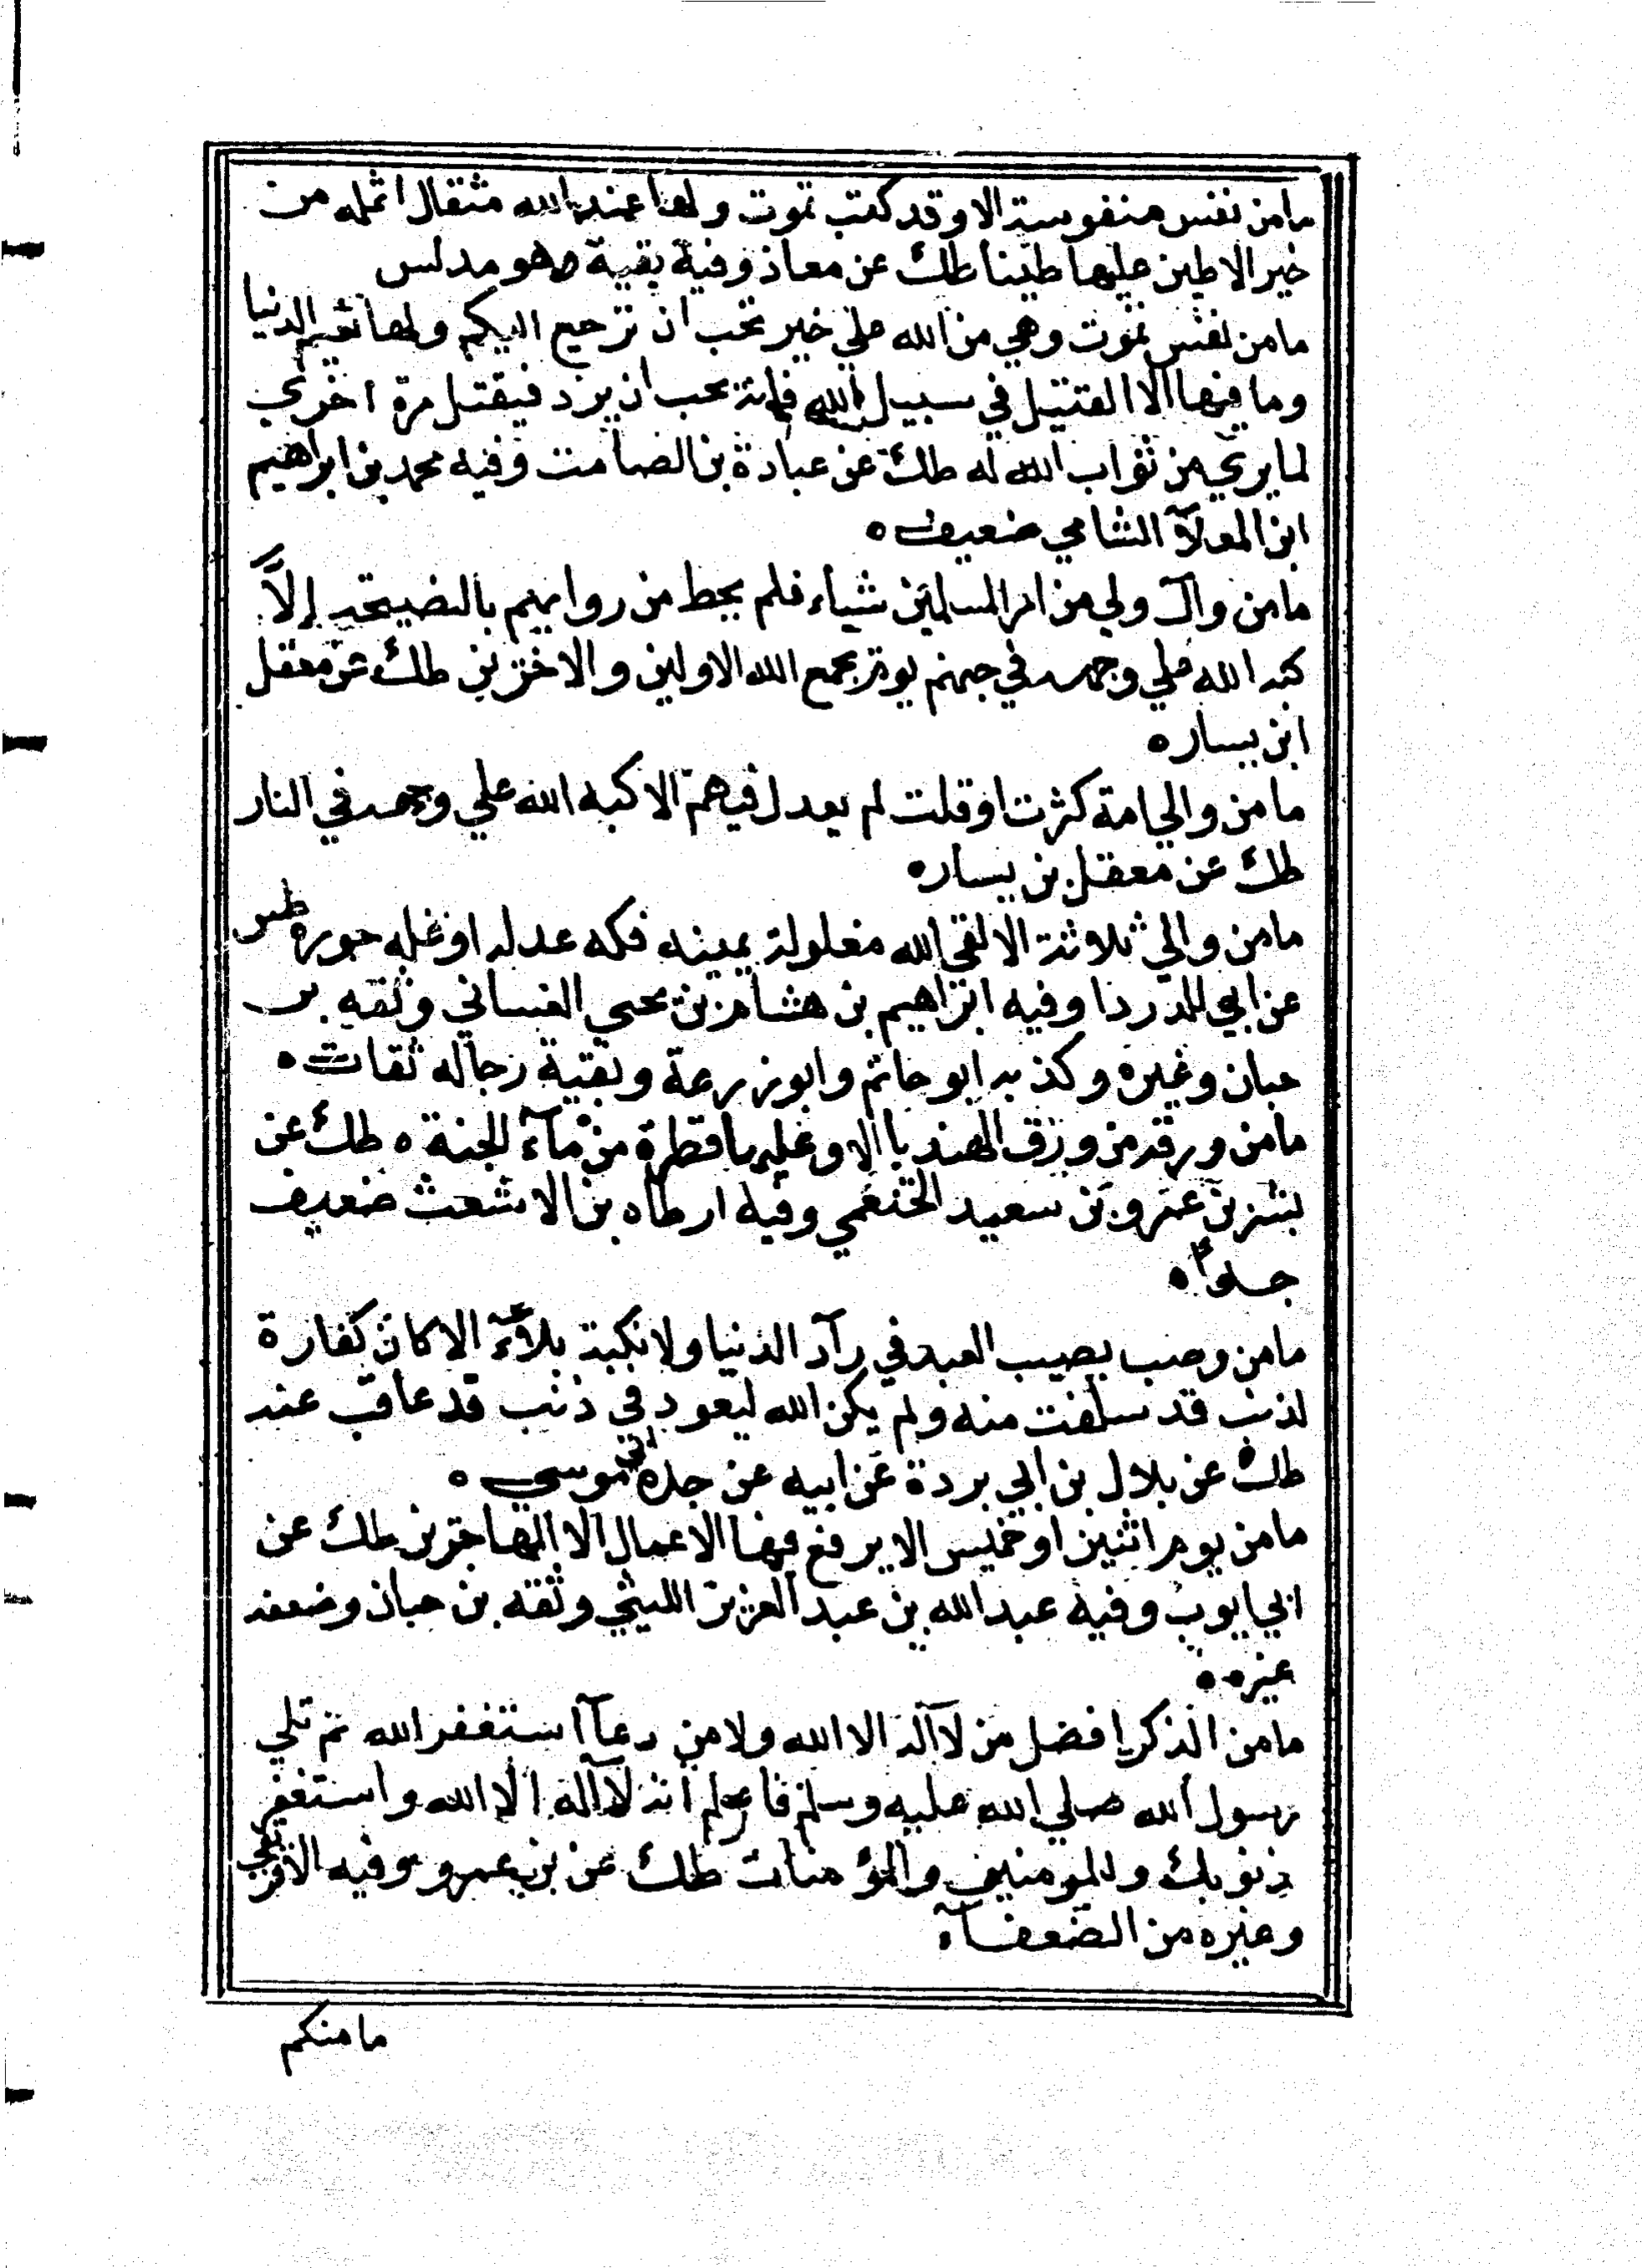 مامن نفس منفوسة الا وقد كتب تموت ولها عند الله مثقال انمله من
خير الاطين عليها طينا طك عن معاذ وفية بقية وهو مدلس
مامن نفس تموت وهي من الله علي خير تحب ان ترجع اليكم ولها نعيم الدنيا
وما فيها الا القتيل في سبيل الله فانة يحب ان يرد فيقتل مرة اخري
لما يري من ثواب الله له طك عن عبادة بن الصامت وفيه محمد بن ابراهيم
ابن العلآ الشامي ضعيف ه
مامن وال ولي من امر المسلمين شياء فلم يحط من روايهم بالنصيحة إلاَّ
كبه الله علي وجهه في جهنم يوم يجمع الله الاولين والاخرين طك عن معقل
ابن يسار ه
مامن والي امة كثرت او قلت لم يعدل فيهم الا كبه الله علي وجهه في النار
طك عن معقل بن يسار ه
مامن والي ثلاثة الا لقي الله مغلولة يمينه فكه عدله او غله جوره طس
عن ابي الدردا وفيه ابراهيم بن هشام بن يحيي الغساني وثقه بن
حبان وغيره وكذبه ابو حاتم وابو زرعة وبقية رجاله ثقات ه
مامن ورقة من ورق الهندبا الا وعليها قطرة من مآء الجنة ه طك عن
بشر بن عمرو بن سعيد الخثعمي وفيه ارطاه بن الاشعث ضعيف
جداً ه
مامن وصب يصيب العبد في دآر الدنيا ولا نكبة بلآء الا كان كفارة
لذنب قد سلفت منه ولم يكن الله ليعود في ذنب قد عاقب عنه
طك عن بلال بن ابي بردة عن ابيه عن جده ابي موسي ه
مامن يوم اثنين او خميس الا يرفع فيها الاعمال الا المهاجرين طك عن
ابي ايوب وفيه عبد الله بن عبد العزيز الليثي وثقه بن حبان وضعفه
غيره ه
مامن الذكر افضل من لآ اله الا الله ولا من دعآ استغفر الله ثم تلي
رسول الله صلي الله عليه وسلم فاعلم انه لآ اله الا الله واستغفر
ذنوبك وللمومنين والمؤمنات طك عن بن عمرو وفيه الافريقي
وغيره من الضعفآء
مامنكم